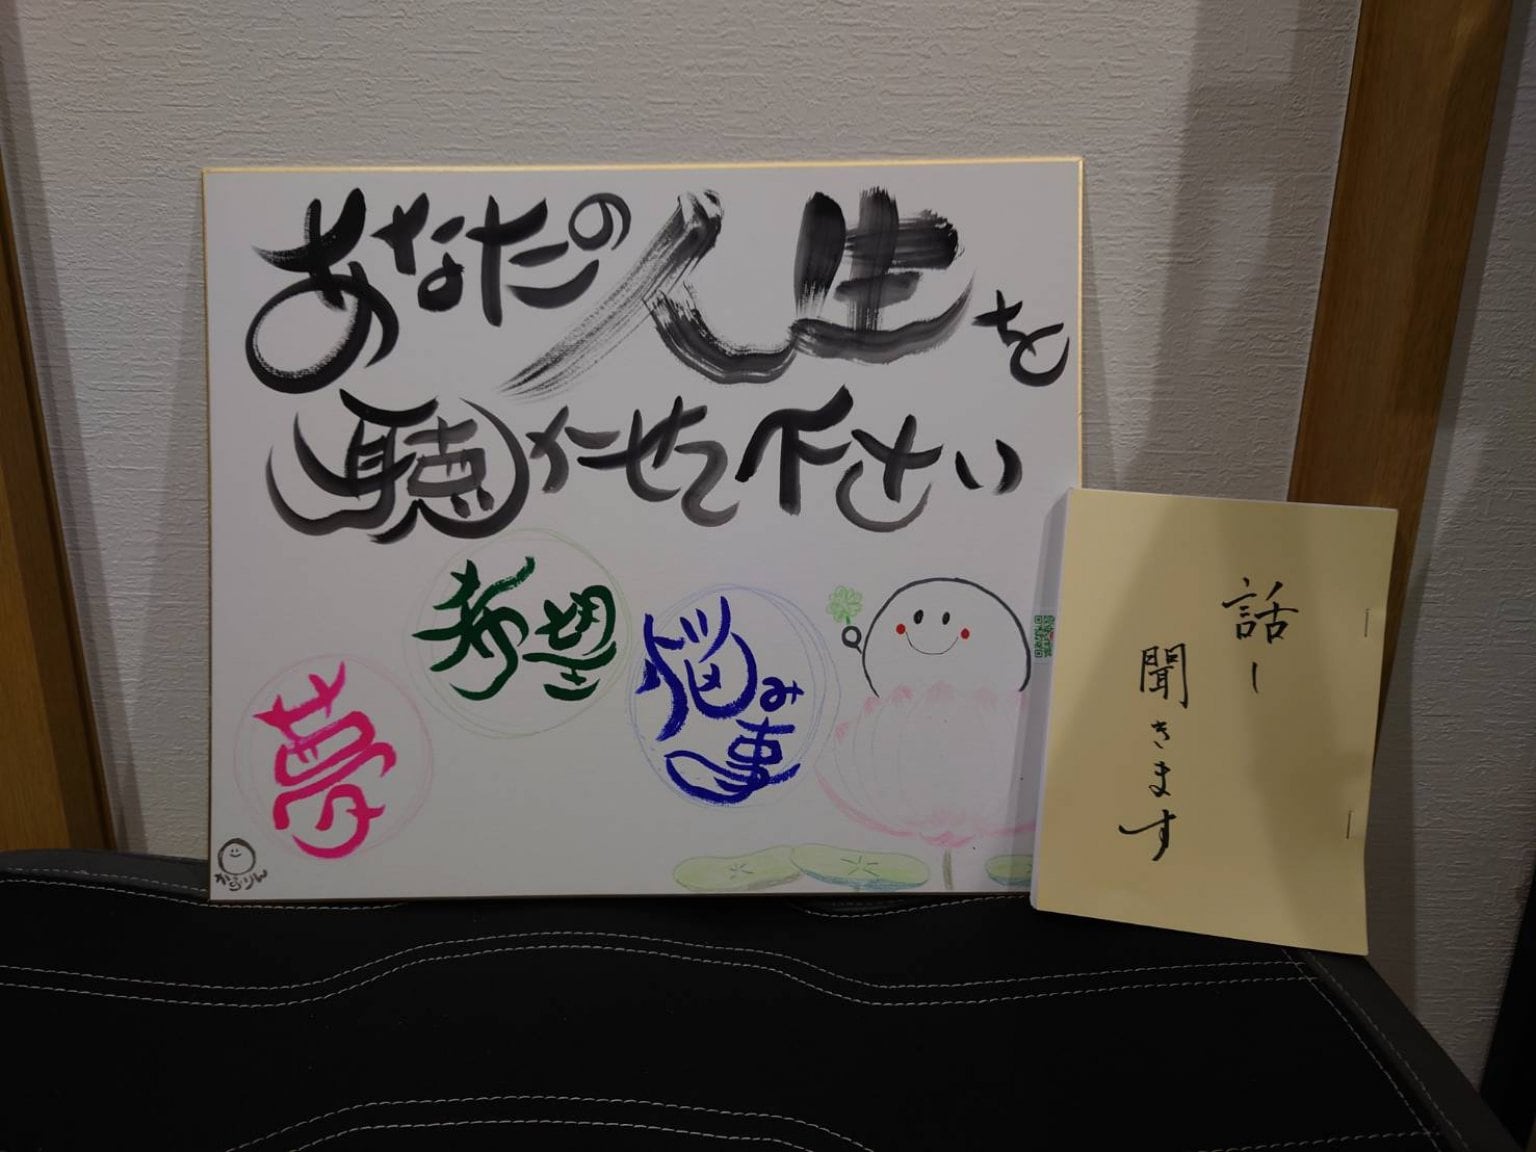 あなたの人生を
聴かせて下さい
夢
希望
悩み事
話し
聞きます